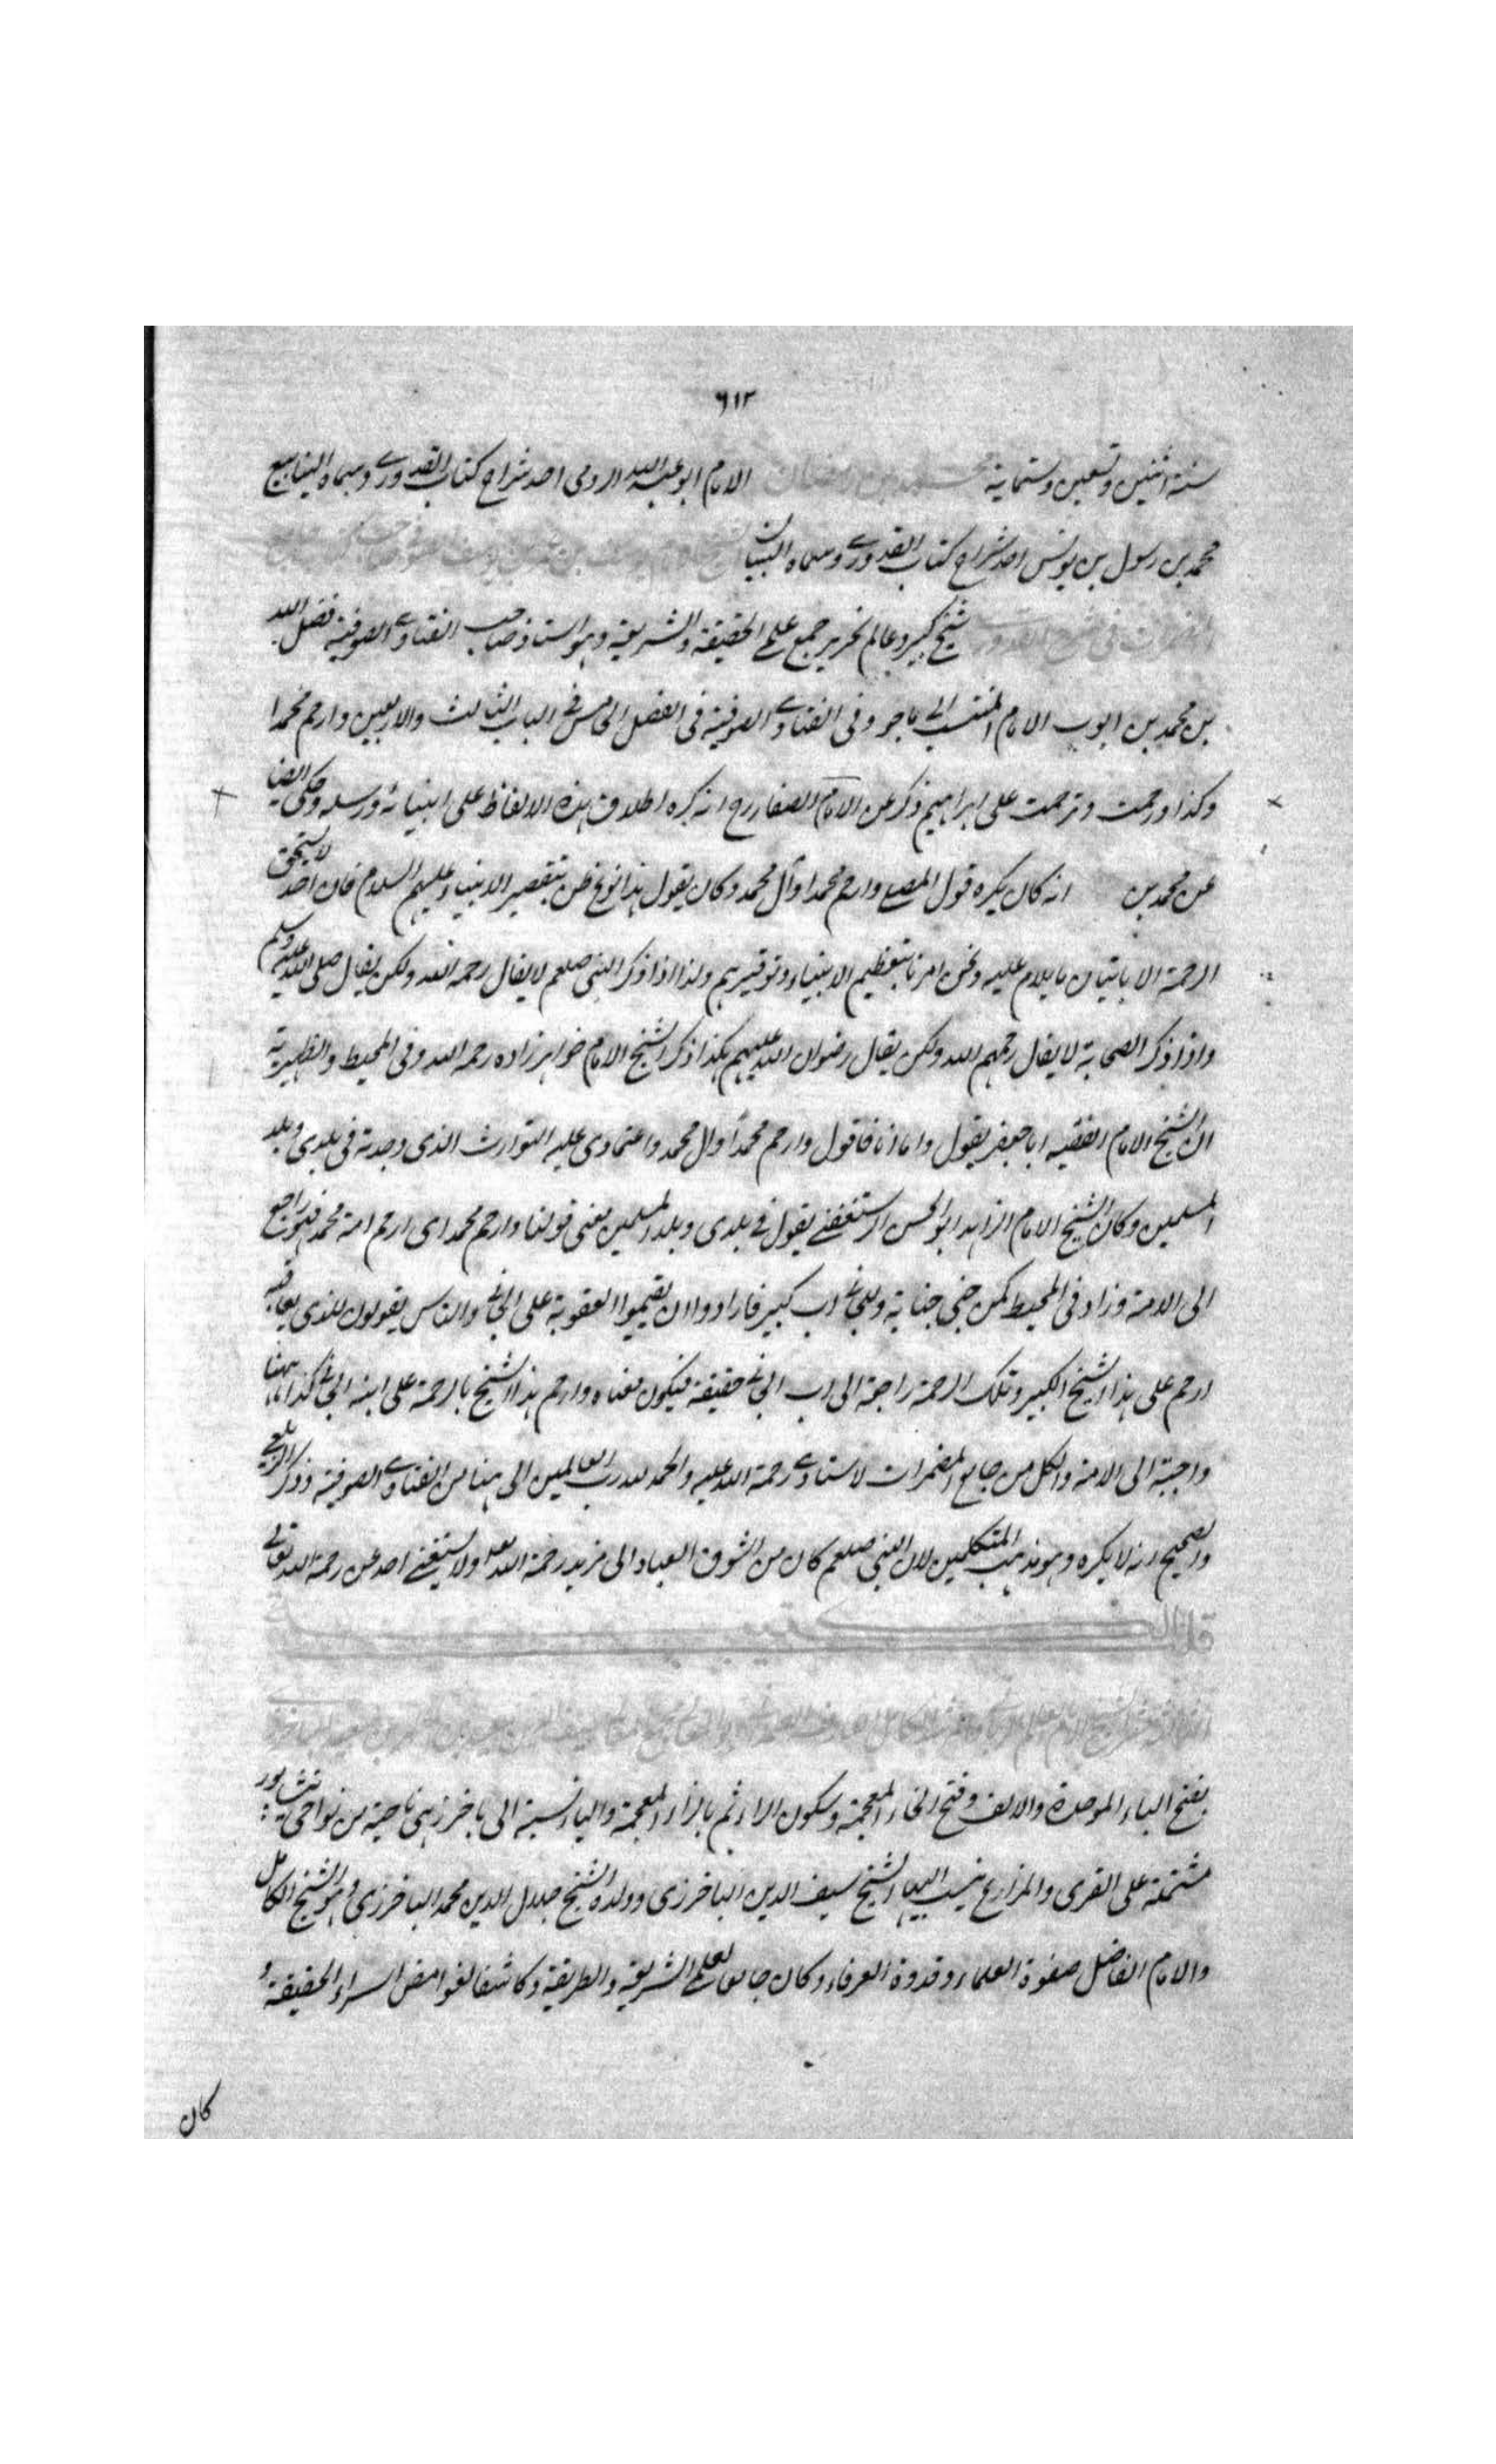 ٦١٢
سنة اثنين وتسعين وستماية محمد بن رمضان الامام ابو عبد الله الرومى احد شراح كتاب القدورى وسماه الينابيع
محمد بن رسول بن يونس احد شراح كتاب القدورى وسماه البيان
شيخ كبير وعالم نحرير جمع علم الحقيقة والشريعة وهو استاذ صاحب الفتاوى الصوفية فضل الله
بن محمد بن ايوب الامام المنتسب الى ماجو وفى الفتاوى الصوفية فى الفصل الخامس فى الباب الثالث والاربعين وارحم محمدا
وكذا ورحمت وترحمت على ابراهيم ذكر عن الامام الصفار رح انه كره اطلاق هذه الالفاظ على انبيائه ورسله وحكى ايضا
عن محمد بن انه كان يكره قول المصلى وارحم محمدا وآل محمد وكان يقول هذا نوع ظن بتقصير الانبياء عليهم السلام فان احدا لا يستحق
الرحمة الا باتيان ما يلام عليه ونحن امرنا بتعظيم الانبياء وتوقيرهم ولذا اذا ذكر النبى صلعم لا يقال رحمه الله ولكن يقال صلى الله عليه وسلم
واذا ذكر الصحابة لا يقال رحمهم الله ولكن يقال رضوان الله عليهم هكذا ذكر الشيخ الامام خواهر زاده رحمه الله وفى المحيط والظهيرية
ان الشيخ الامام الفقيه ابا جعفر يقول واما انا فاقول وارحم محمدا وآل محمد واعتمادى عليه التوارث الذى وجدته فى بلدى وبلد
المسلمين وكان الشيخ الامام الزاهد ابو الحسن الرستغفنى يقول فى بلدى وبلد المسلمين يعنى قولنا وارحم محمدا اى ارحم امة محمد فهو راجع
الى الامة وزاد فى المحيط كمن جنى جناية وللجانى اب كبير فارادوا ان يقيموا العقوبة على الجانى والناس يقولون للذى يعاقبه
ارحم على هذا الشيخ الكبير وتلك الرحمة راجعة الى اب الجانى حقيقة فيكون معناه وارحم هذا الشيخ بالرحمة على ابنه الجانى كذا ههنا
واجبة الى الامة والكل من جامع المضمرات لاستادى رحمة الله عليه والحمد لله رب العالمين الى هنا من الفتاوى الصوفية وذكر الزيلعى
والصحيح انه لا يكره وهو مذهب المتكلمين لان النبى صلعم كان من اشوق العباد الى مزيد رحمة الله تعالى ولا يستغنى احد عن رحمة الله تعالى
بفتح الباء الموحدة والالف وفتح الخاء المعجمة وسكون الراء ثم بالزاء المعجمة والياء نسبة الى باخرز هى ناحية من نواحى نيشابور
مشتملة على القرى والمزارع ينسب اليها الشيخ سيف الدين الباخرزى وولده الشيخ جلال الدين محمد الباخرزى وهو الشيخ الكامل
والامام الفاضل صفوة العلماء وقدوة العرفاء وكان جامع لعلم الشريعة والطريقة وكاشفا لغوامض اسرار الحقيقة و
كان